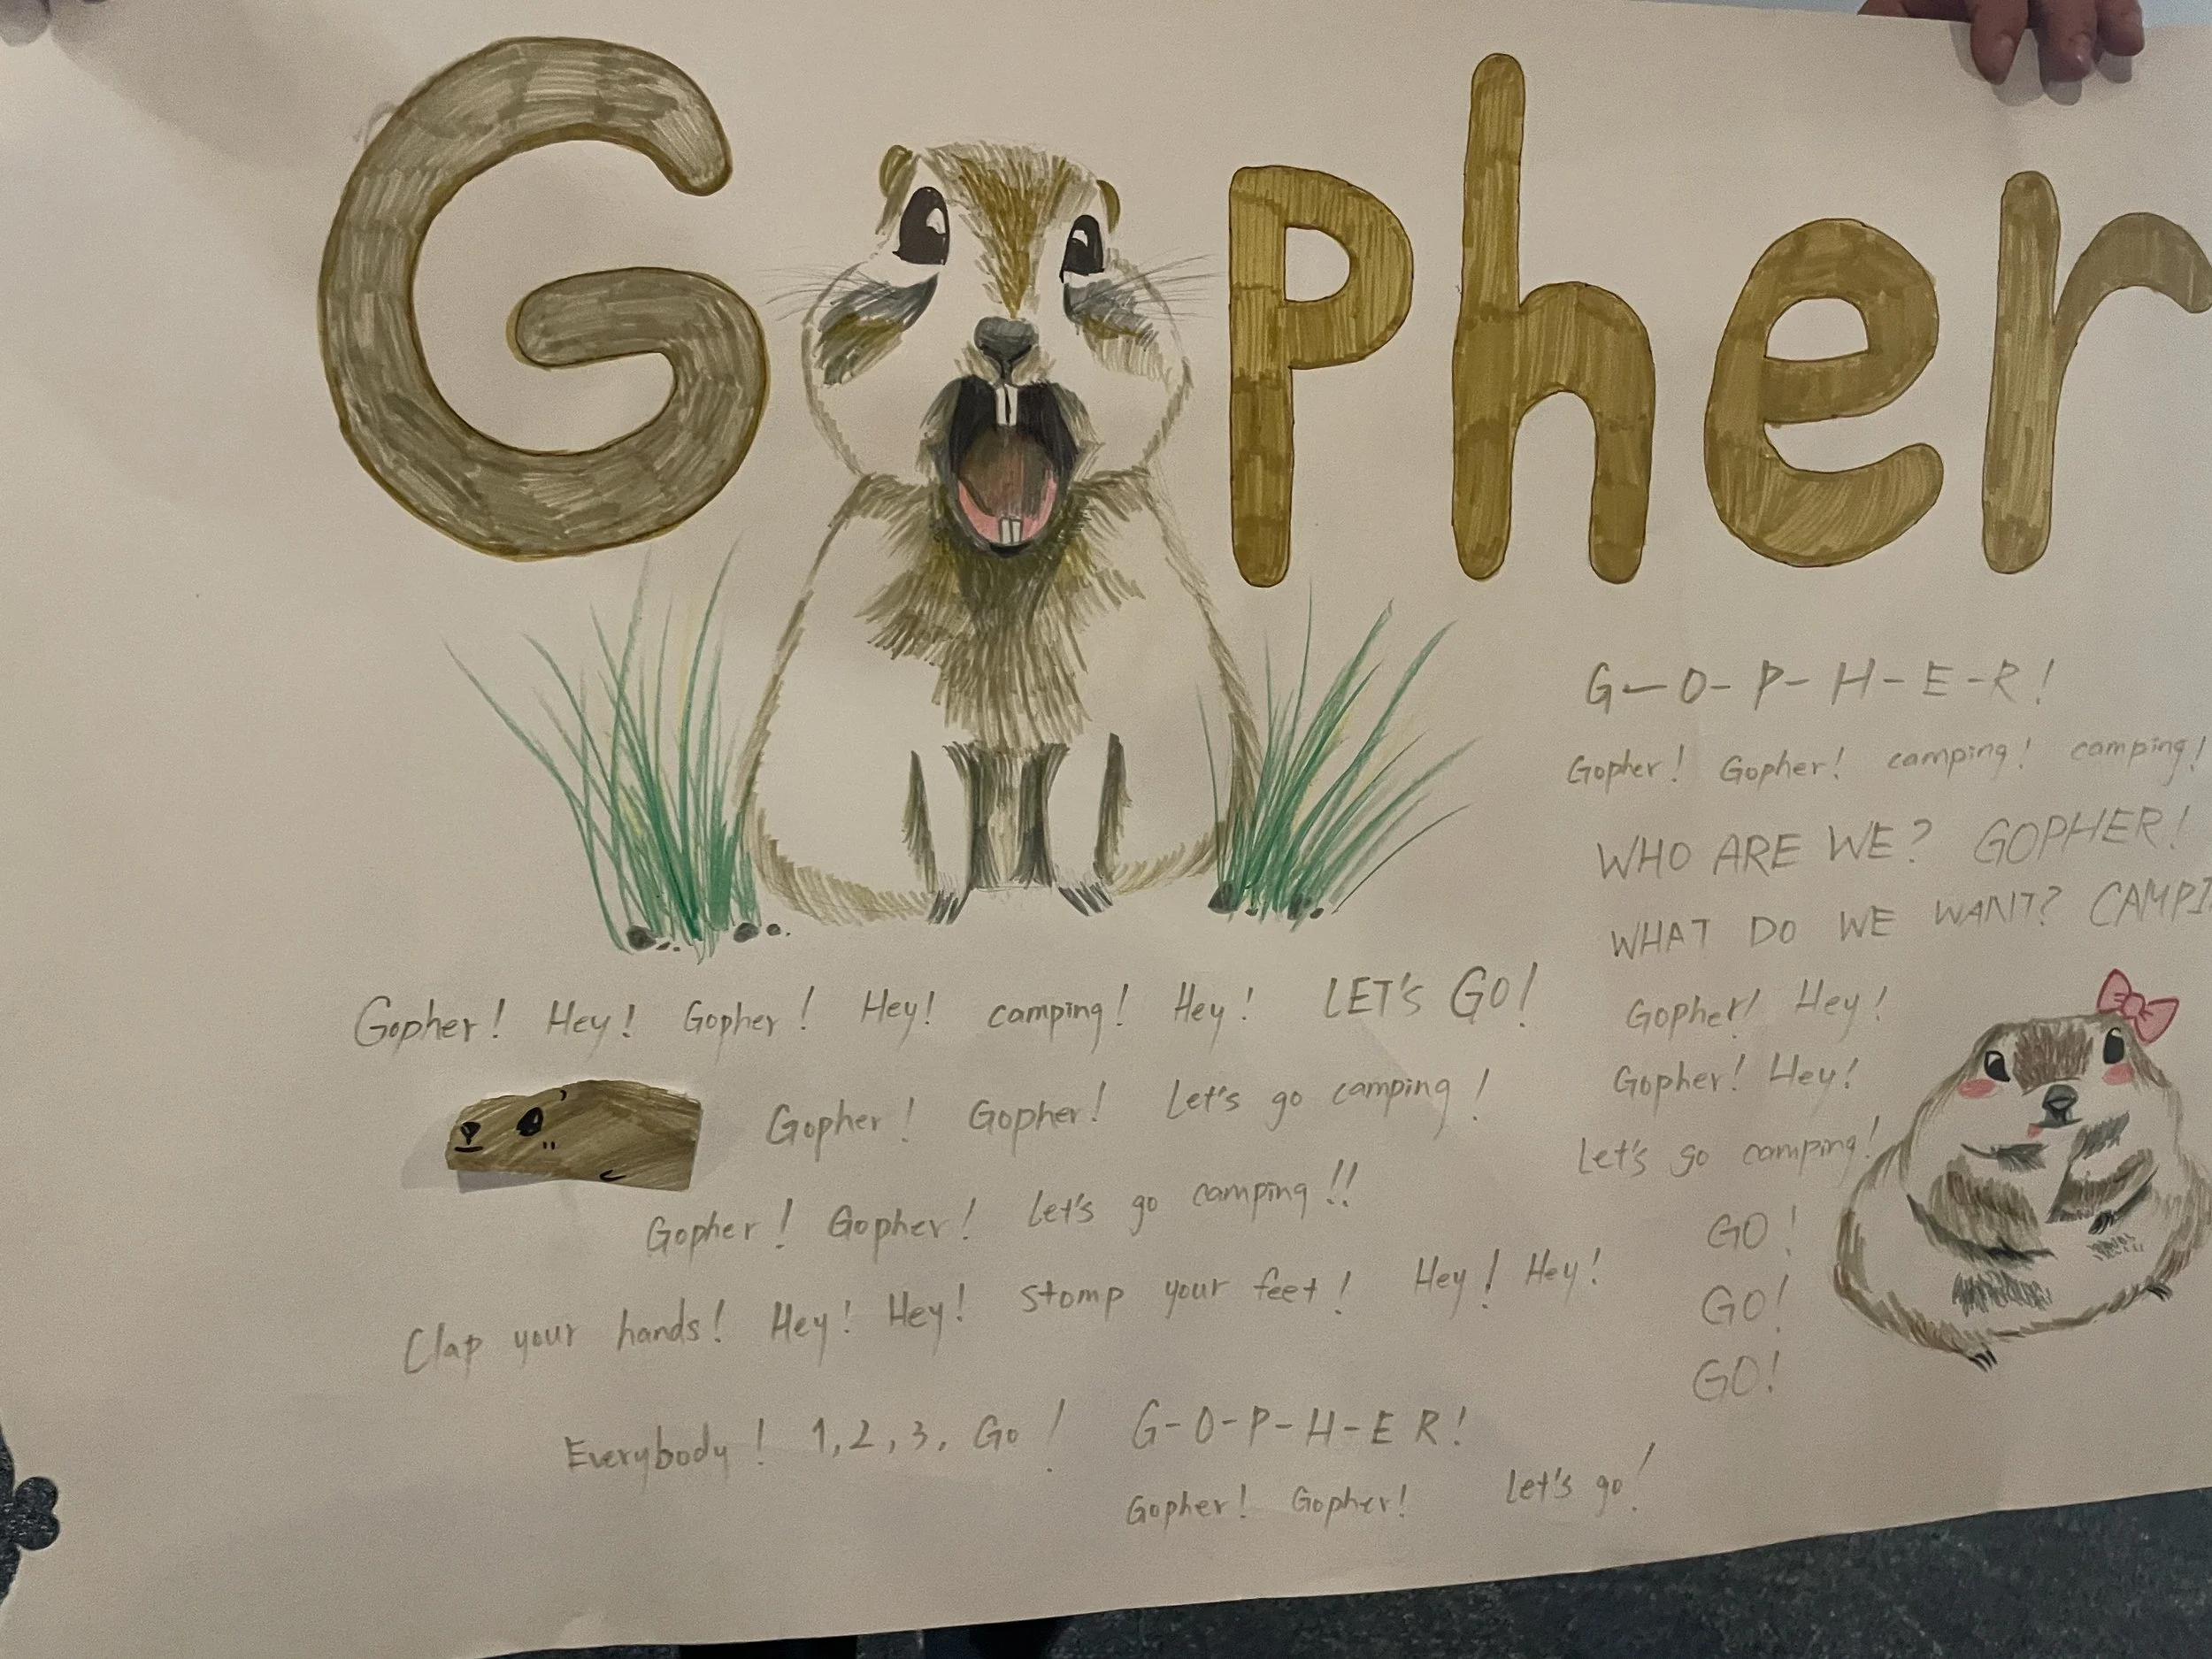 Gpher
Gopher! Hey! Gopher! Hey! camping! Hey! LET'S GO!
Gopher! Gopher! Let's go camping!
Gopher! Gopher! Let's go camping!!
Clap your hands! Hey! Hey! Stomp your feet! Hey! Hey!
Everybody! 1, 2, 3, Go! G-O-P-H-E R!
Gopher! Gopher! Let's go!
G-O-P-H-E-R!
Gopher! Gopher! camping! camping!
WHO ARE WE? GOPHER!
WHAT DO WE WANT?
Gopher! Hey!
Gopher! Hey!
Let's go camping!
GO!
GO!
GO!